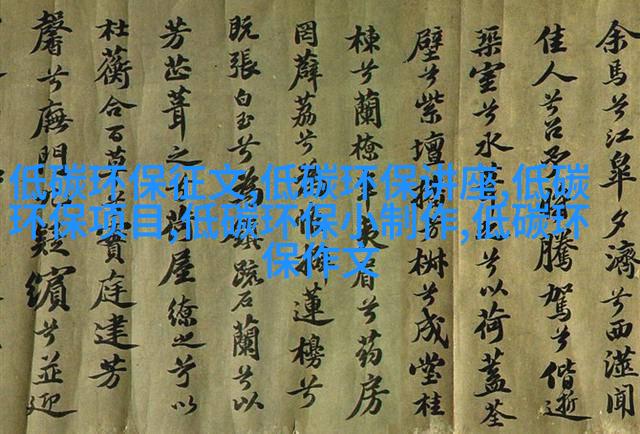 低碳环保征文,低碳环保讲座,低碳
环保项目,低碳环保小制作,低碳环
保作文
余馬兮江皋夕濟兮西澨聞
佳人兮召予將騰駕兮偕逝
築室兮水兮以荷蓋荃
壁兮紫壇兮成堂桂
棟兮蘭橑夷眉兮葯房
罔薜荔兮蓮櫋兮
既張白玉兮為鎮疏石蘭兮以
芳芷葺之荷屋繚之兮以
杜蘅合百草實庭建芳
馨兮廡門疑繽兮並迎